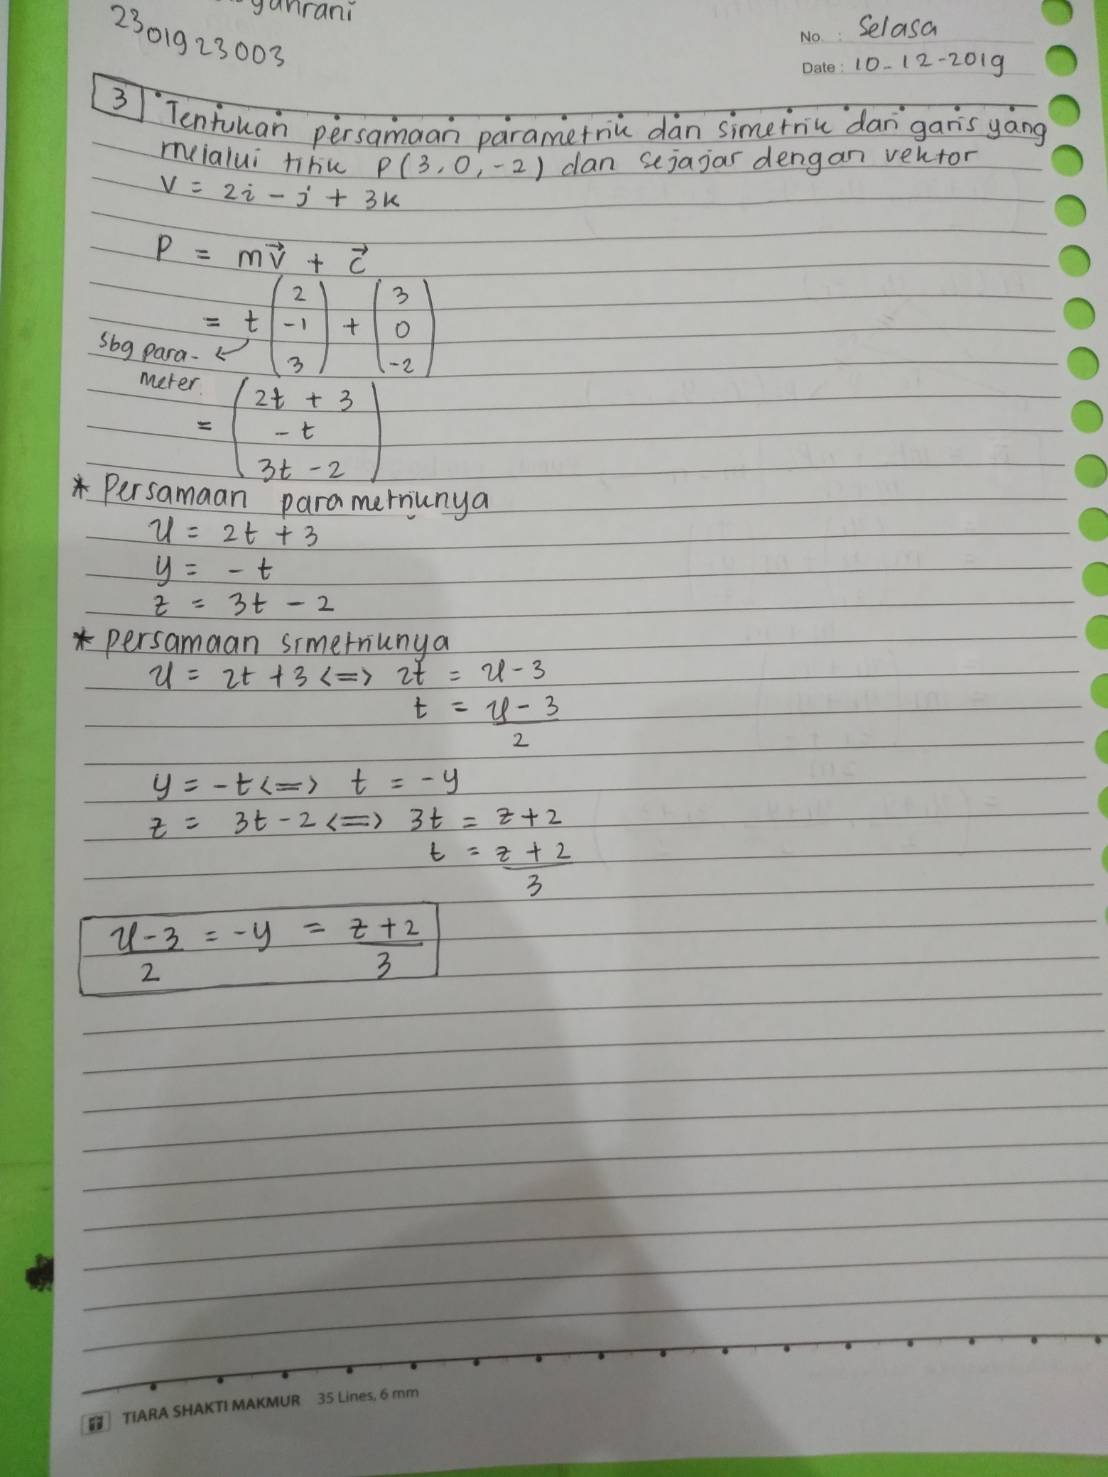 2301923003
No. : Selasa
Date : 10-12-2019
3 Tentukan persamaan parametrik dan simetrik dari garis yang
melalui titik P(3,0,-2) dan sejajar dengan vektor
V = 2i - j + 3k
P = mv⃗ + c⃗
= t (2 -1 3) + (3 0 -2)
sbg para-
meter.
= (2t + 3
- t
3t - 2)
* Persamaan parametriknya
x = 2t + 3
y = - t
z = 3t - 2
* persamaan simetriknya
x = 2t + 3 <=> 2t = x - 3
t = x - 3 / 2
y = -t <=> t = -y
z = 3t - 2 <=> 3t = z + 2
t = z + 2 / 3
x - 3 / 2 = -y = z + 2 / 3
TIARA SHAKTI MAKMUR 35 Lines, 6 mm